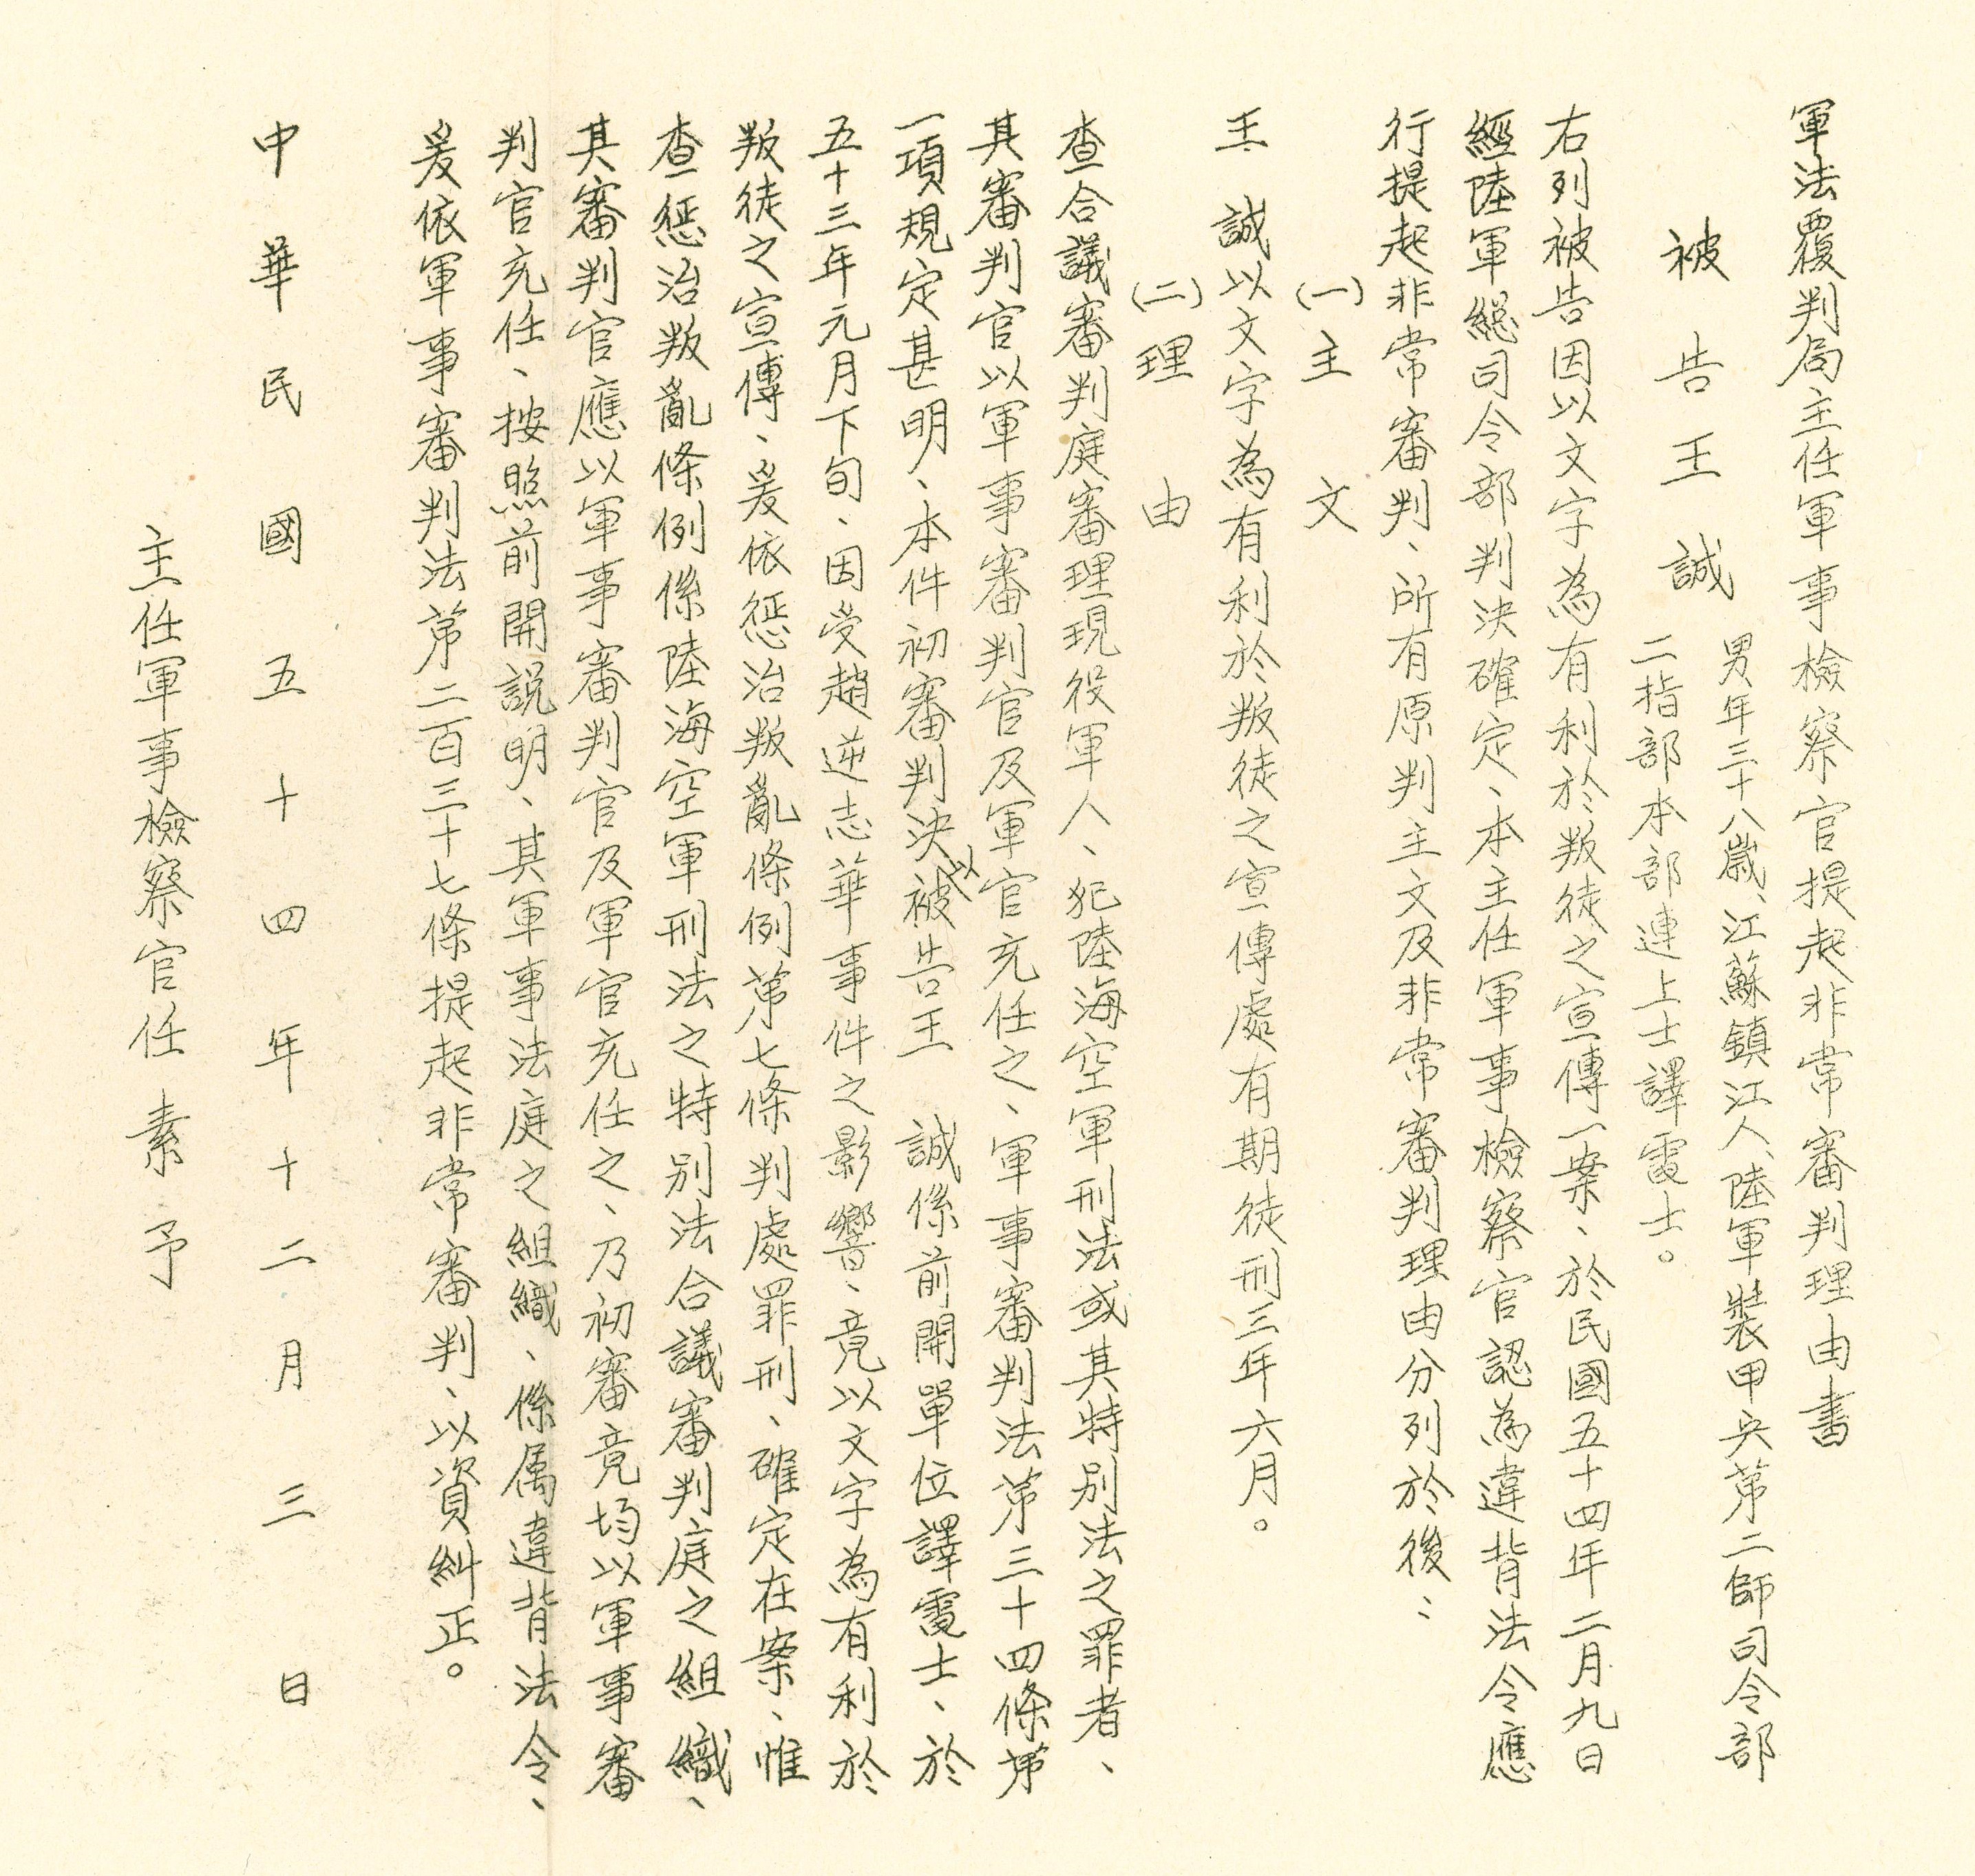 軍法覆判局主任軍事檢察官提起非常審判理由書
被告王誠
男年三十八歲、江蘇鎮江人、陸軍裝甲兵第二師司令部
二指部本部連上士譯電士。
右列被告因以文字為有利於叛徒之宣傳一案、於民國五十四年二月九日
經陸軍總司令部判決確定、本主任軍事檢察官認為違背法令應
行提起非常審判、所有原判主文及非常審判理由分列於後：
(一)主文
王誠以文字為有利於叛徒之宣傳處有期徒刑三年六月。
(二)理由
查合議審判庭審理現役軍人、犯陸海空軍刑法或其特別法之罪者、
其審判官以軍事審判官及軍官充任之、軍事審判法第三十四條第
一項規定甚明、本件初審判決以被告王誠係前開單位譯電士、於
五十三年元月下旬、因受趙逆志華事件之影響、竟以文字為有利於
叛徒之宣傳、爰依懲治叛亂條例第七條判處罪刑、確定在案、惟
查懲治叛亂條例係陸海空軍刑法之特別法合議審判庭之組織、
其審判官應以軍事審判官及軍官充任之、乃初審竟均以軍事審
判官充任、按照前開說明、其軍事法庭之組織、係屬違背法令、
爰依軍事審判法第二百三十七條提起非常審判、以資糾正。
中華民國五十四年十二月三日
主任軍事檢察官任素予